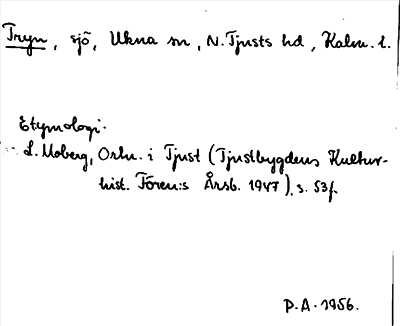 Tryn, sjö, Ukna sn, N. Tjusts hd, Kalm. l.
Etymologi.
L. Moberg, Ortn. i Tjust (Tjustbygdens Kultur-
hist. Fören:s Årsb. 1947), s. 53f.
P.A. 1956.